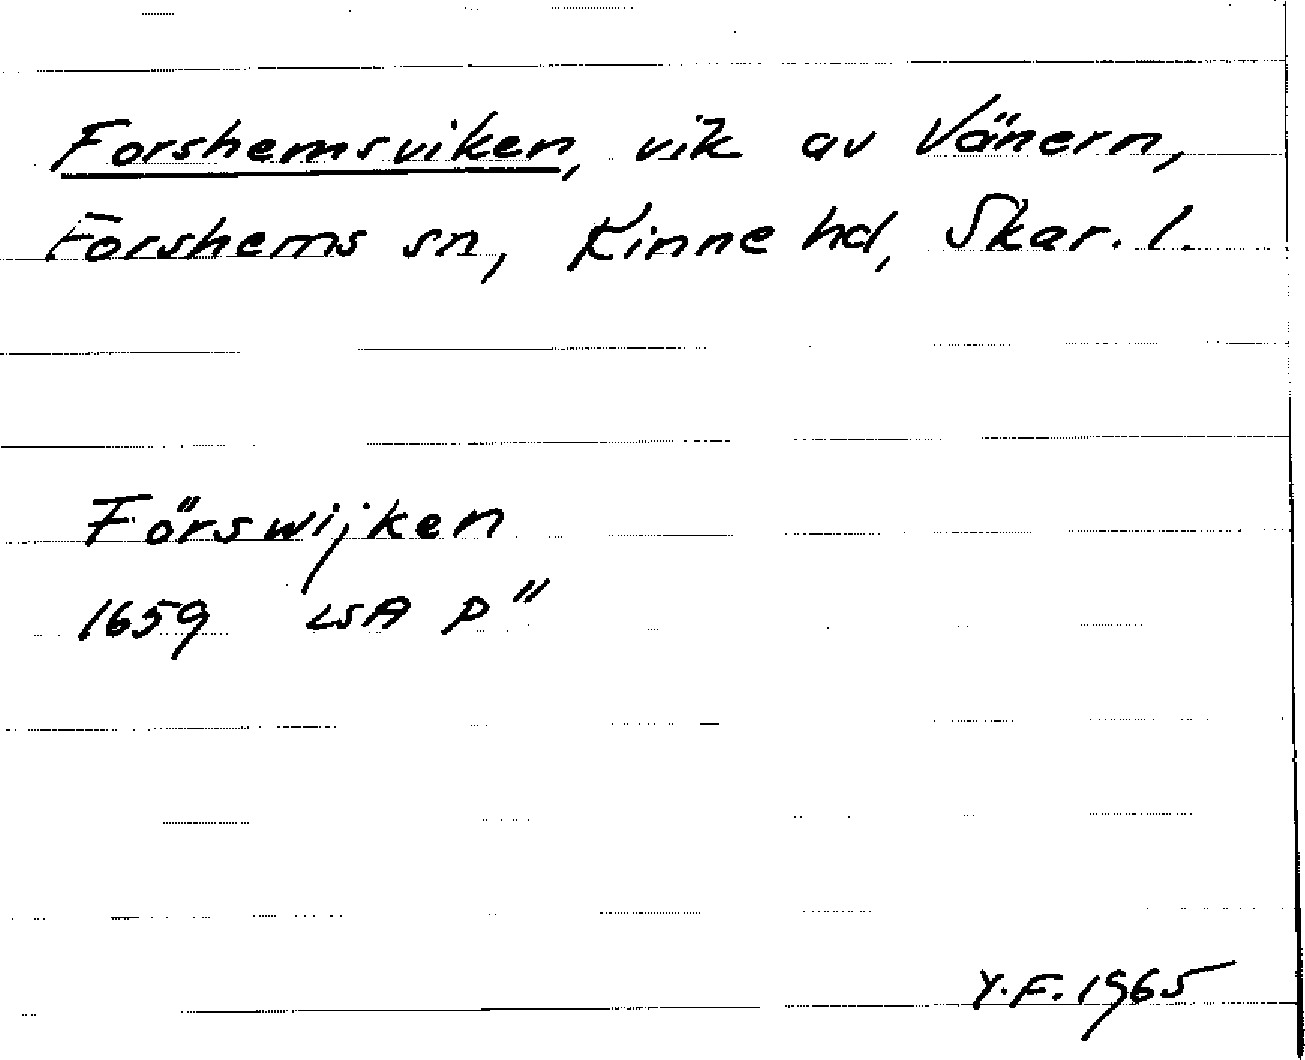 Forshemsviken, vik av Vänern,
Forshems sn, Kinne hd, Skar. l.
Förswijken
1659 LSA P"
Y.F. 1965